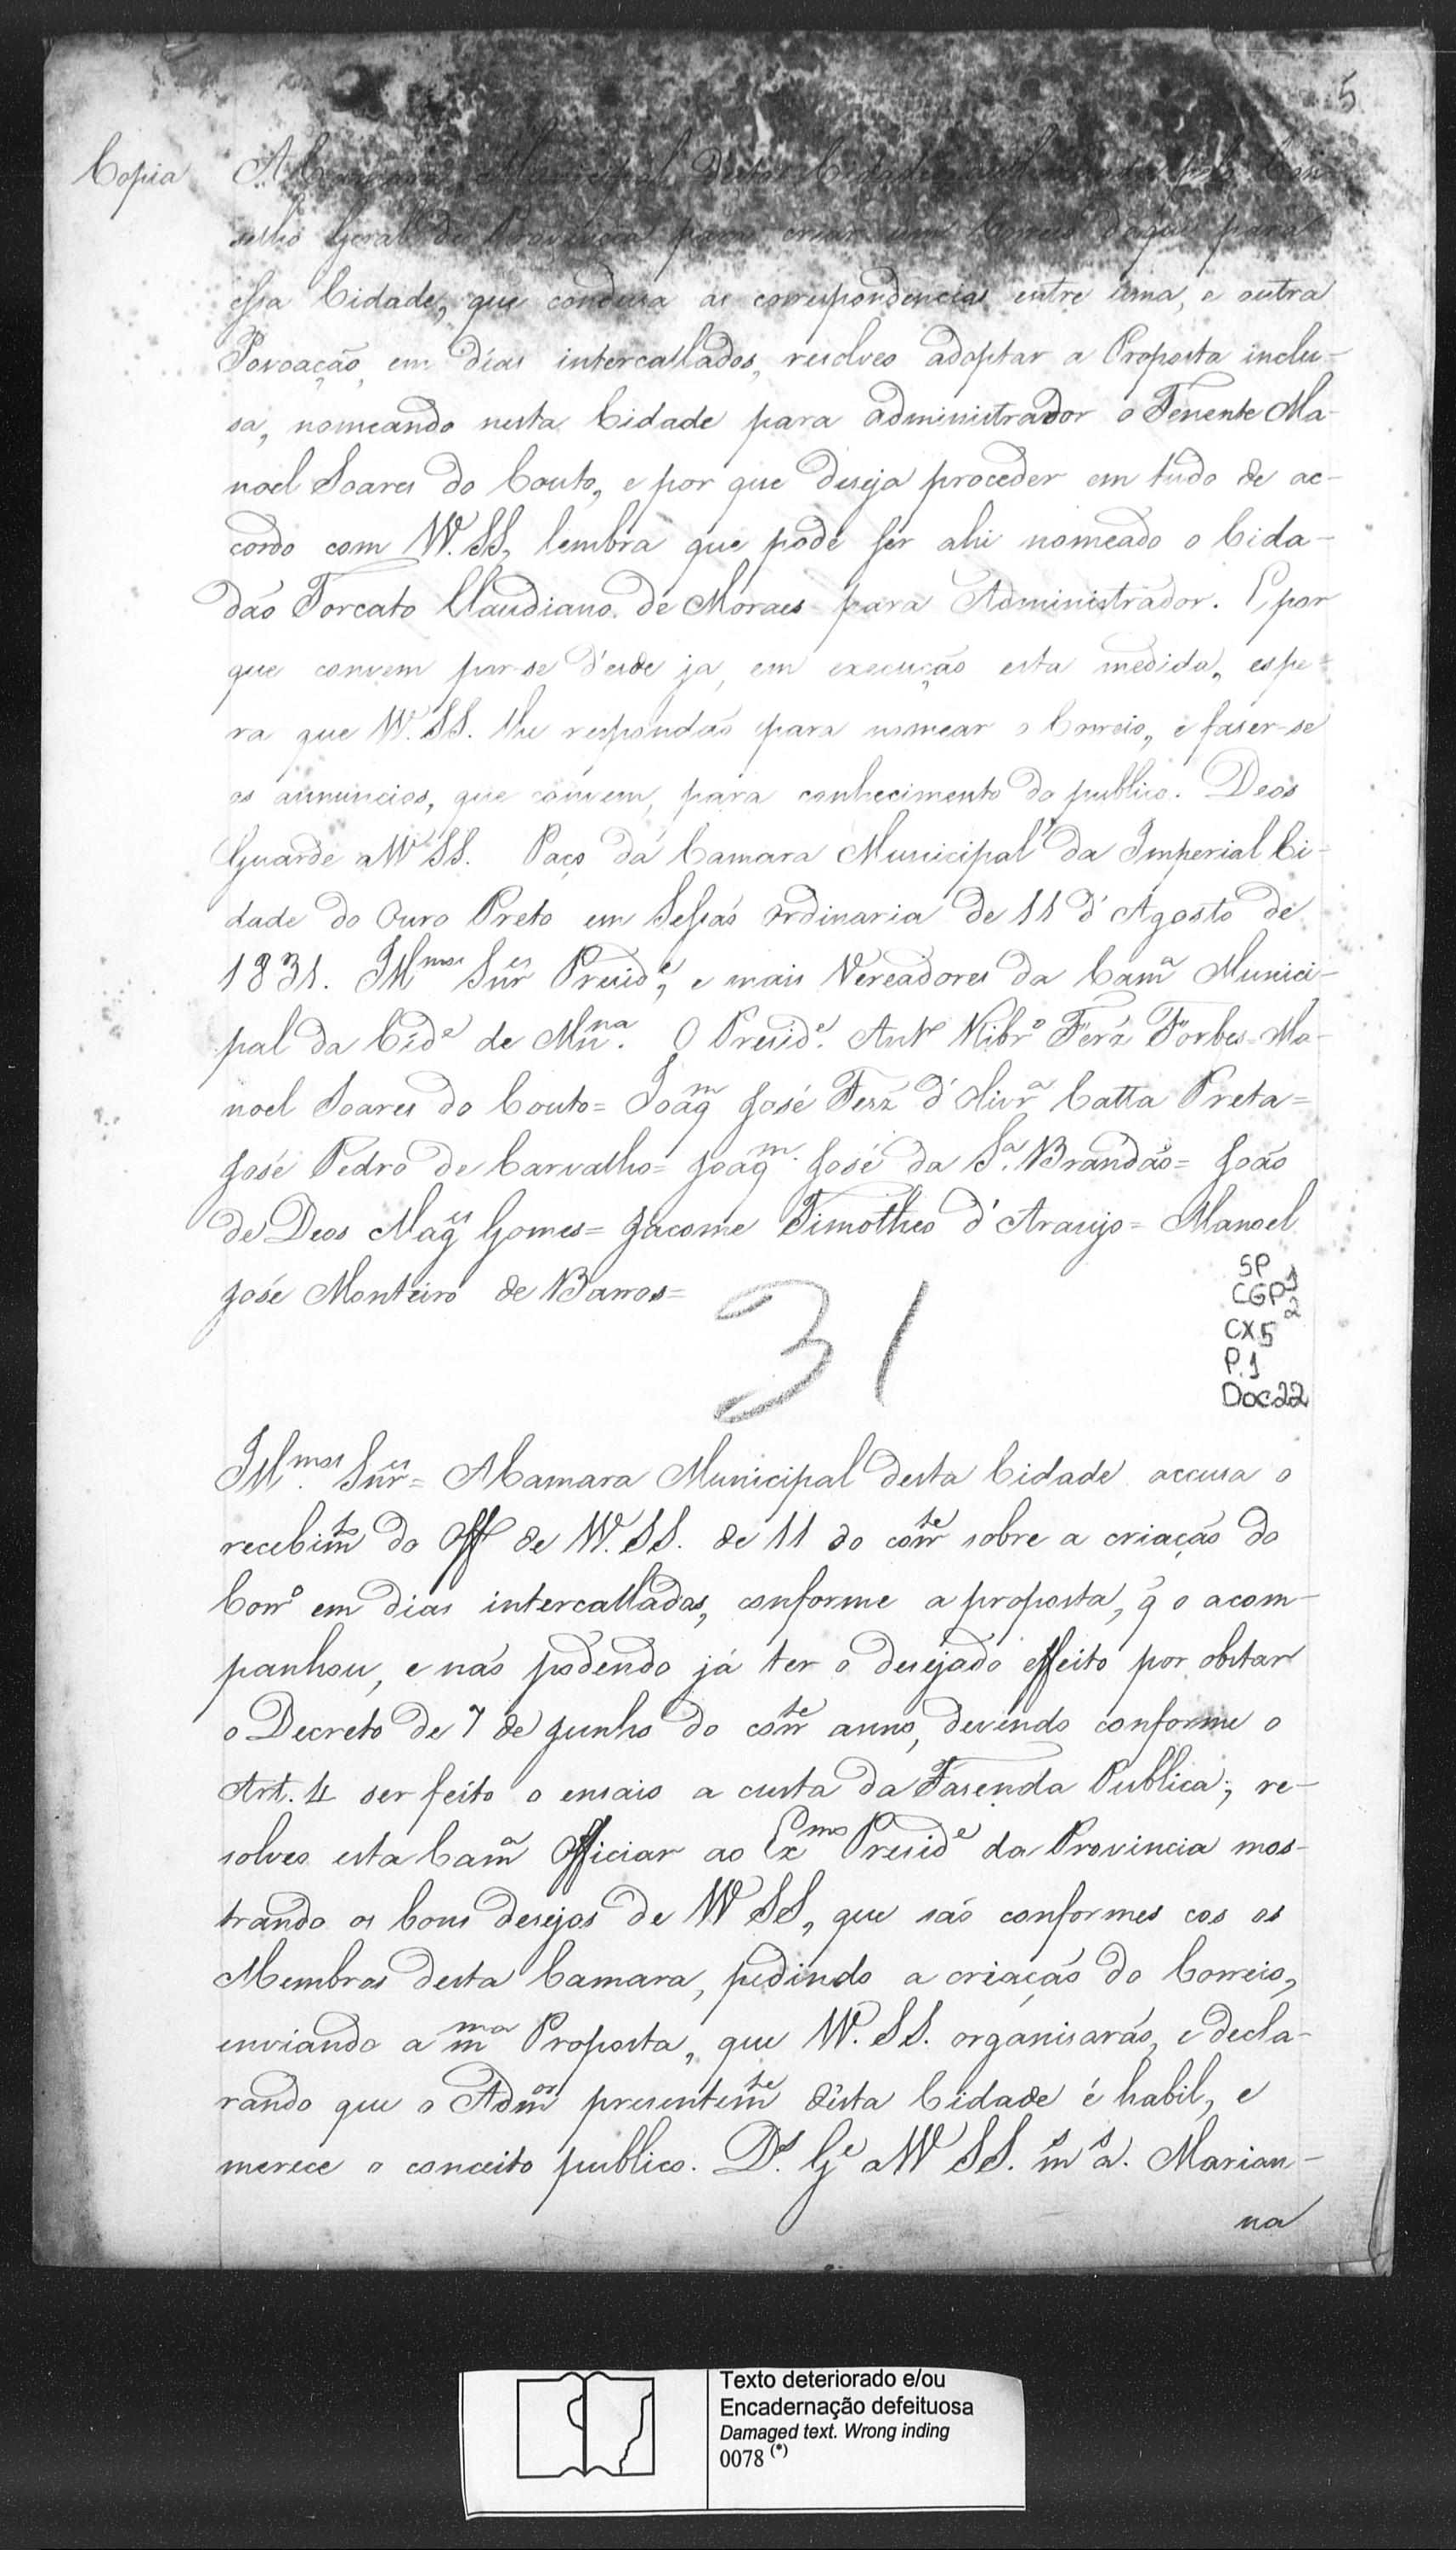 5
Copia
A Camara Municipal desta Cidade authorisada pelo Con-
selho Geral da Provincia para crear um Correio daqui para
essa Cidade, que condusa as correspondencias entre uma, e outra
Povoação, em dias intercallados, resolveo adoptar a Proposta inclu-
sa, nomeando nesta Cidade para administrador o Tenente Ma-
noel Soares do Couto, e por que deseja proceder em tudo de ac-
cordo com VV. SS., lembra que pode ser ahi nomeado o Cida-
dão Torcato Claudiano de Moraes para Administrador. E por
que convem por-se d'esde ja, em execução esta medida, espe-
ra que VV. SS. lhe respondão para nomear o Correio, e faser-se
os annuncios, que convem, para conhecimento do publico. Deos
Guarde a VV SS. Paço da Camara Municipal da Imperial Ci-
dade do Ouro Preto em Sessão ordinaria de 11 d'Agosto de
1831. Illmos Snres Preside, e mais Vereadores da Cama Munici-
pal da Cide de Mnna. O Preside. Anto Ribro Ferz Forbes = Ma-
noel Soares do Couto = Joaqm José Ferz d'Olivra Catta Preta =
José Pedro de Carvalho = Joaqm. José da Sa. Brandão = João
de Deos Mages Gomes = Jacome Timotheo d'Araujo = Manoel
José Monteiro de Barros =
31
SP
CGP 1
2
CX 5
P. 1
Doc 22
Illmos. Snres = A Camara Municipal desta Cidade accusa o
recebimto do Off de VV. SS. de 11 do corrte sobre a criação do
Corro em dias intercallados, conforme a proposta, q̃ o acom-
panhou, e não podendo já ter o desejado effeito por obstar
o Decreto de 7 de Junho do corrte anno, devendo conforme o
Art. 4 ser feito o ensaio a custa da Fasenda Publica; re-
solveo esta Cama Officiar ao Exmo Preside da Provincia mos-
trando os bons desejos de VV SS, que são conformes cos os
Membros desta Camara, pedindo a criação do Correio,
enviando a mma Proposta, que VV. SS. organisarão, e decla-
rando que o Admor presentemte désta Cidade é habil, e
merece o conceito publico. Ds. Ge a VV SS. ms as. Marian-
na
Texto deteriorado e/ou
Encadernação defeituosa
Damaged text. Wrong inding
0078 (*)